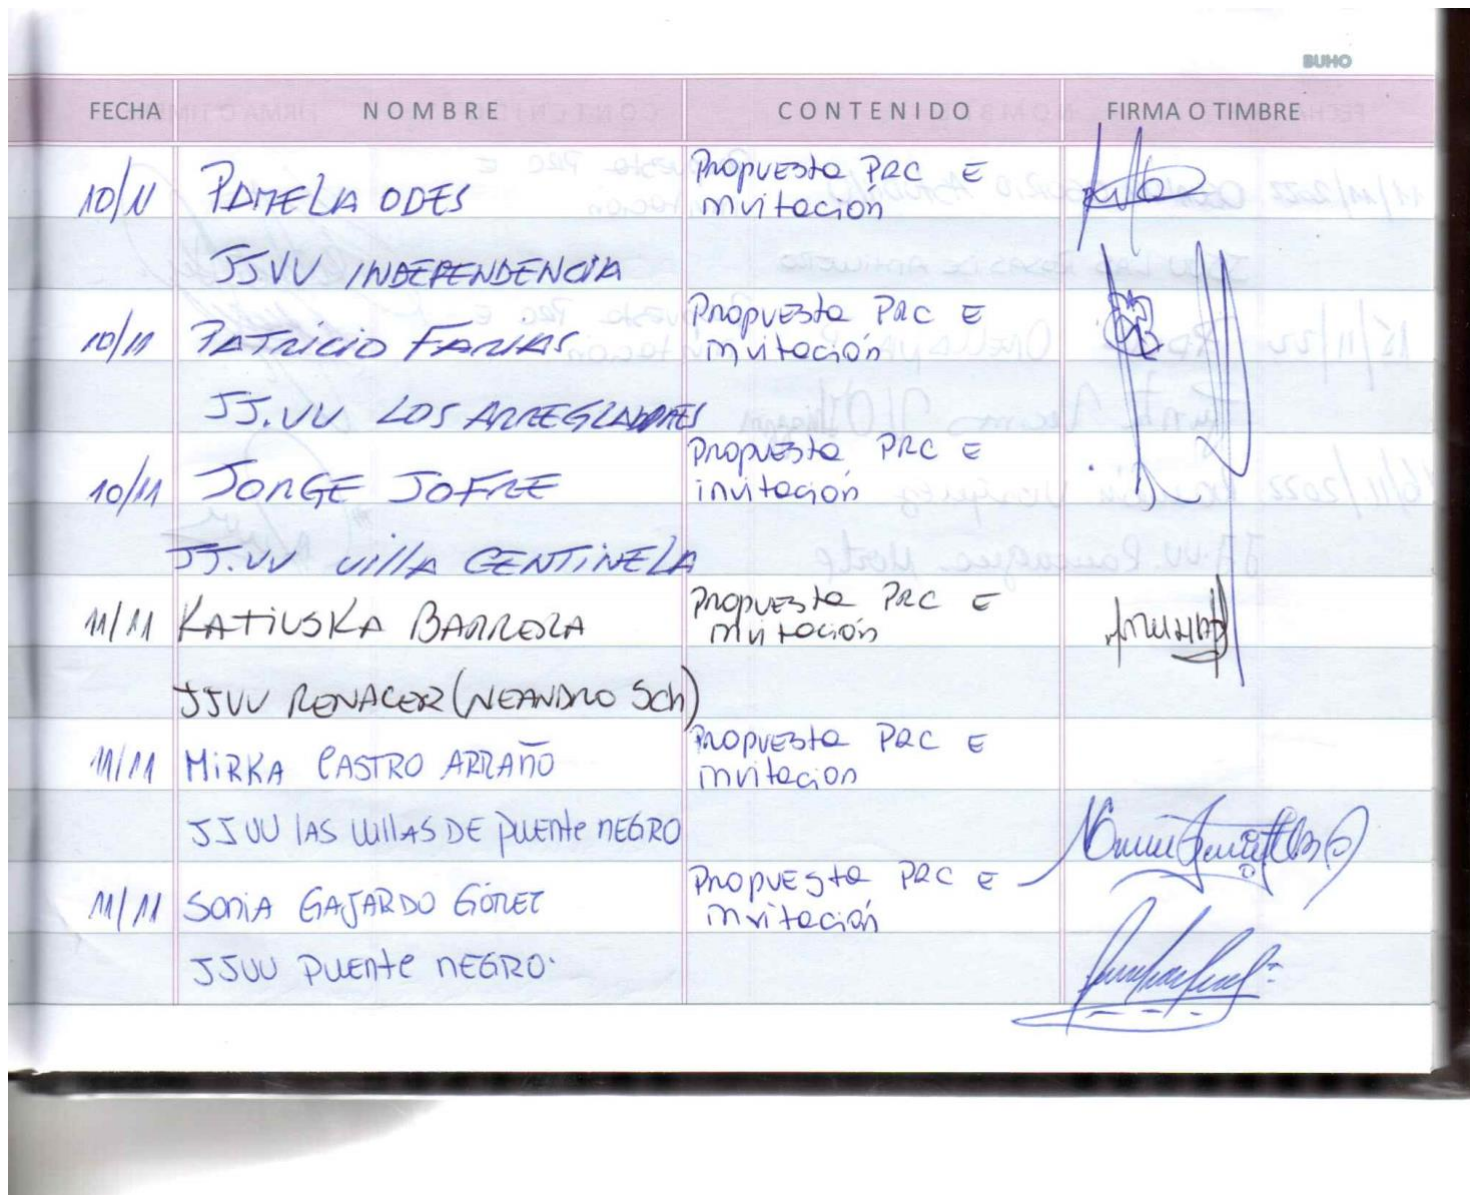 BUHO
FECHA NOMBRE CONTENIDO FIRMA O TIMBRE
10/11 PAMELA ODES Propuesta PRC E
invitación
JJVV INDEPENDENCIA
10/11 PATRICIO FARIAS Propuesta PRC E
invitación
JJ.VV LOS ARREGLADORES
10/11 JORGE JOFRE Propuesta PRC E
invitación
JJ.VV Villa CENTINELA
11/11 KATIUSKA BARRERA Propuesta PRC E
invitación
JJVV RENACER (NEANDRO Sch)
11/11 MIRKA CASTRO ARRAÑO Propuesta PRC E
invitacion
JJVV LAS VILLAS DE PUENTE NEGRO
11/11 SONIA GAJARDO GÓMEZ Propuesta PRC E
invitación
JJVV PUENTE NEGRO.